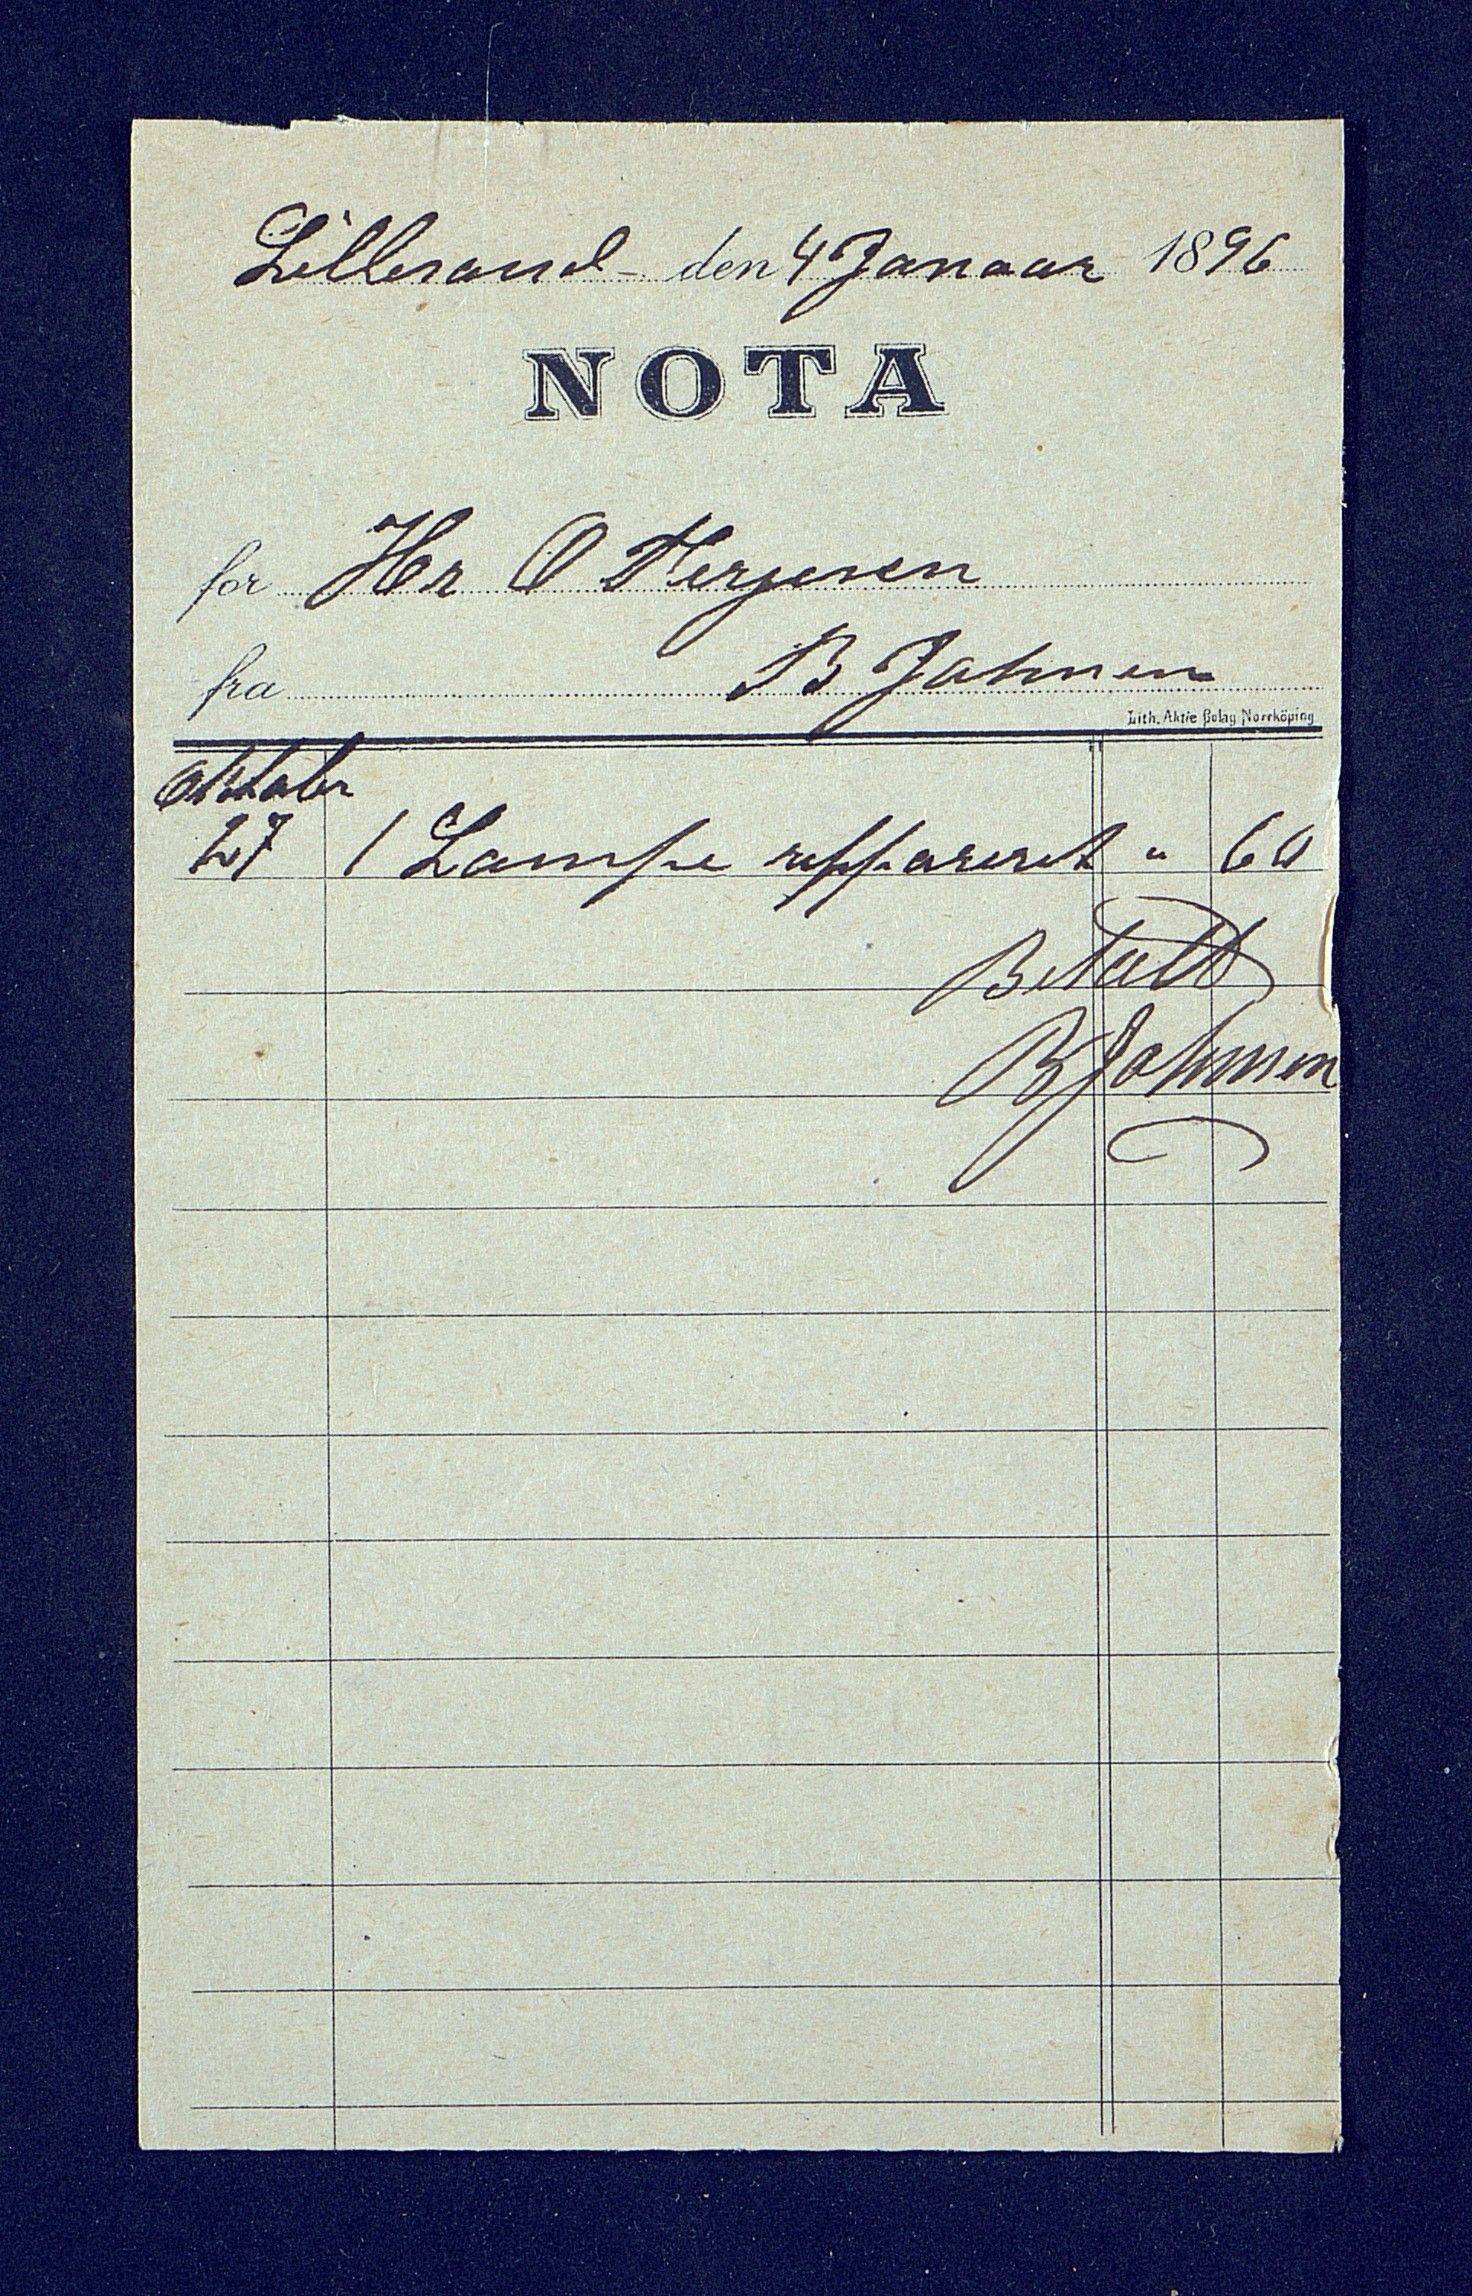 Lillesand den 4 Januar 1896
NOTA
for Hr O Terjesen
fra B Johnsen
Lith. Aktie Bolag Norrköping
Oktober
27 1 Lampe reppareret " 60
Betalt
B Johnsen